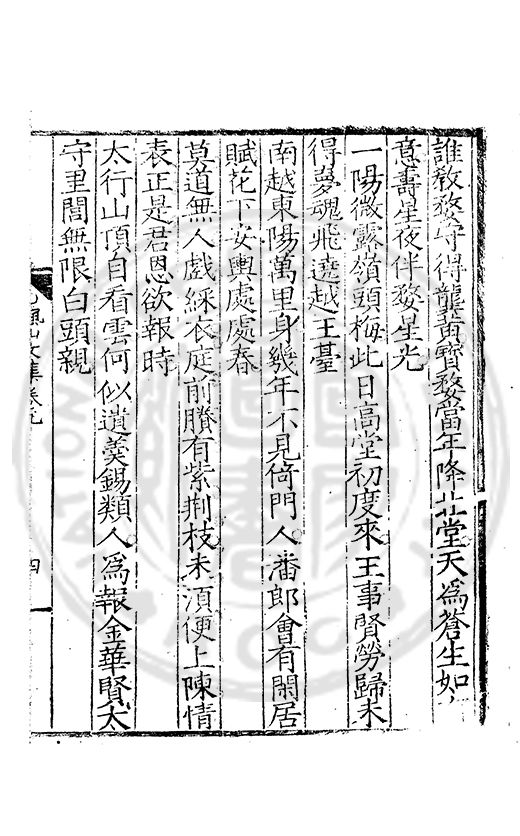 誰敎婺守得龔黃寶婺當年降北堂天爲蒼生如
意壽星夜伴婺星光
一陽微露嶺頭梅此日高堂初度來王事賢勞歸未
得夢魂飛遶越王臺
南越東陽萬里身幾年不見倚門人潘郎會有閑居
賦花下安輿處處春
莫道無人戲綵衣庭前賸有紫荆枝未須便上陳情
表正是君恩欲報時
太行山頂自看雲何似遺羹錫類人爲報金華賢太
守里閭無限白頭親
文集卷九
四